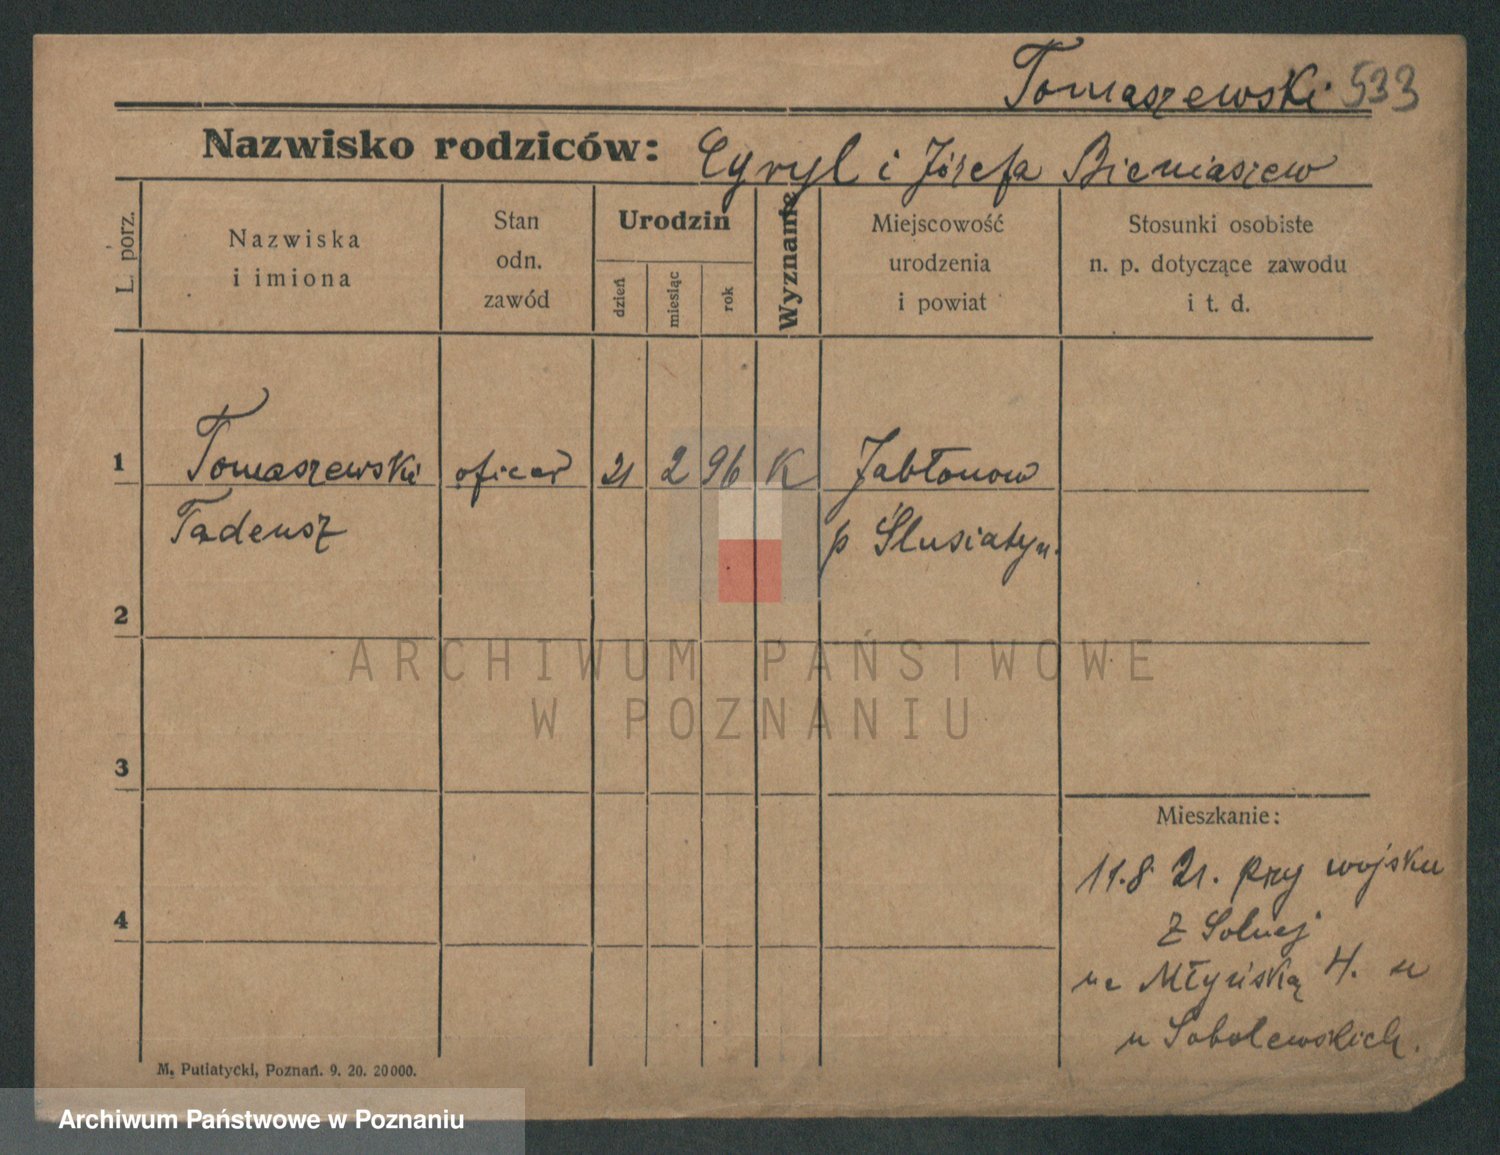 Tomaszewski 533
Nazwisko rodziców: Cyryl i Józefa Bieniaszew
L. porz.
Nazwiska
i imiona
Stan
odn.
zawód
Urodzin
dzień
miesiąc
rok
Wyznanie
Miejscowość
urodzenia
i powiat
Stosunki osobiste
n. p. dotyczące zawodu
i t. d.
1 Tomaszewski oficer 21 2 96 K Jabłonow
Tadeusz p Slusiatyn.
2
ARCHIWUM PAŃSTWOWE
W POZNANIU
3
Mieszkanie:
11.8 21. przy wojsku
4
z Solnej
na Młyńską 4.
u Sobolewskich.
M. Putiatycki, Poznań. 9. 20. 20000.
Archiwum Państwowe w Poznaniu